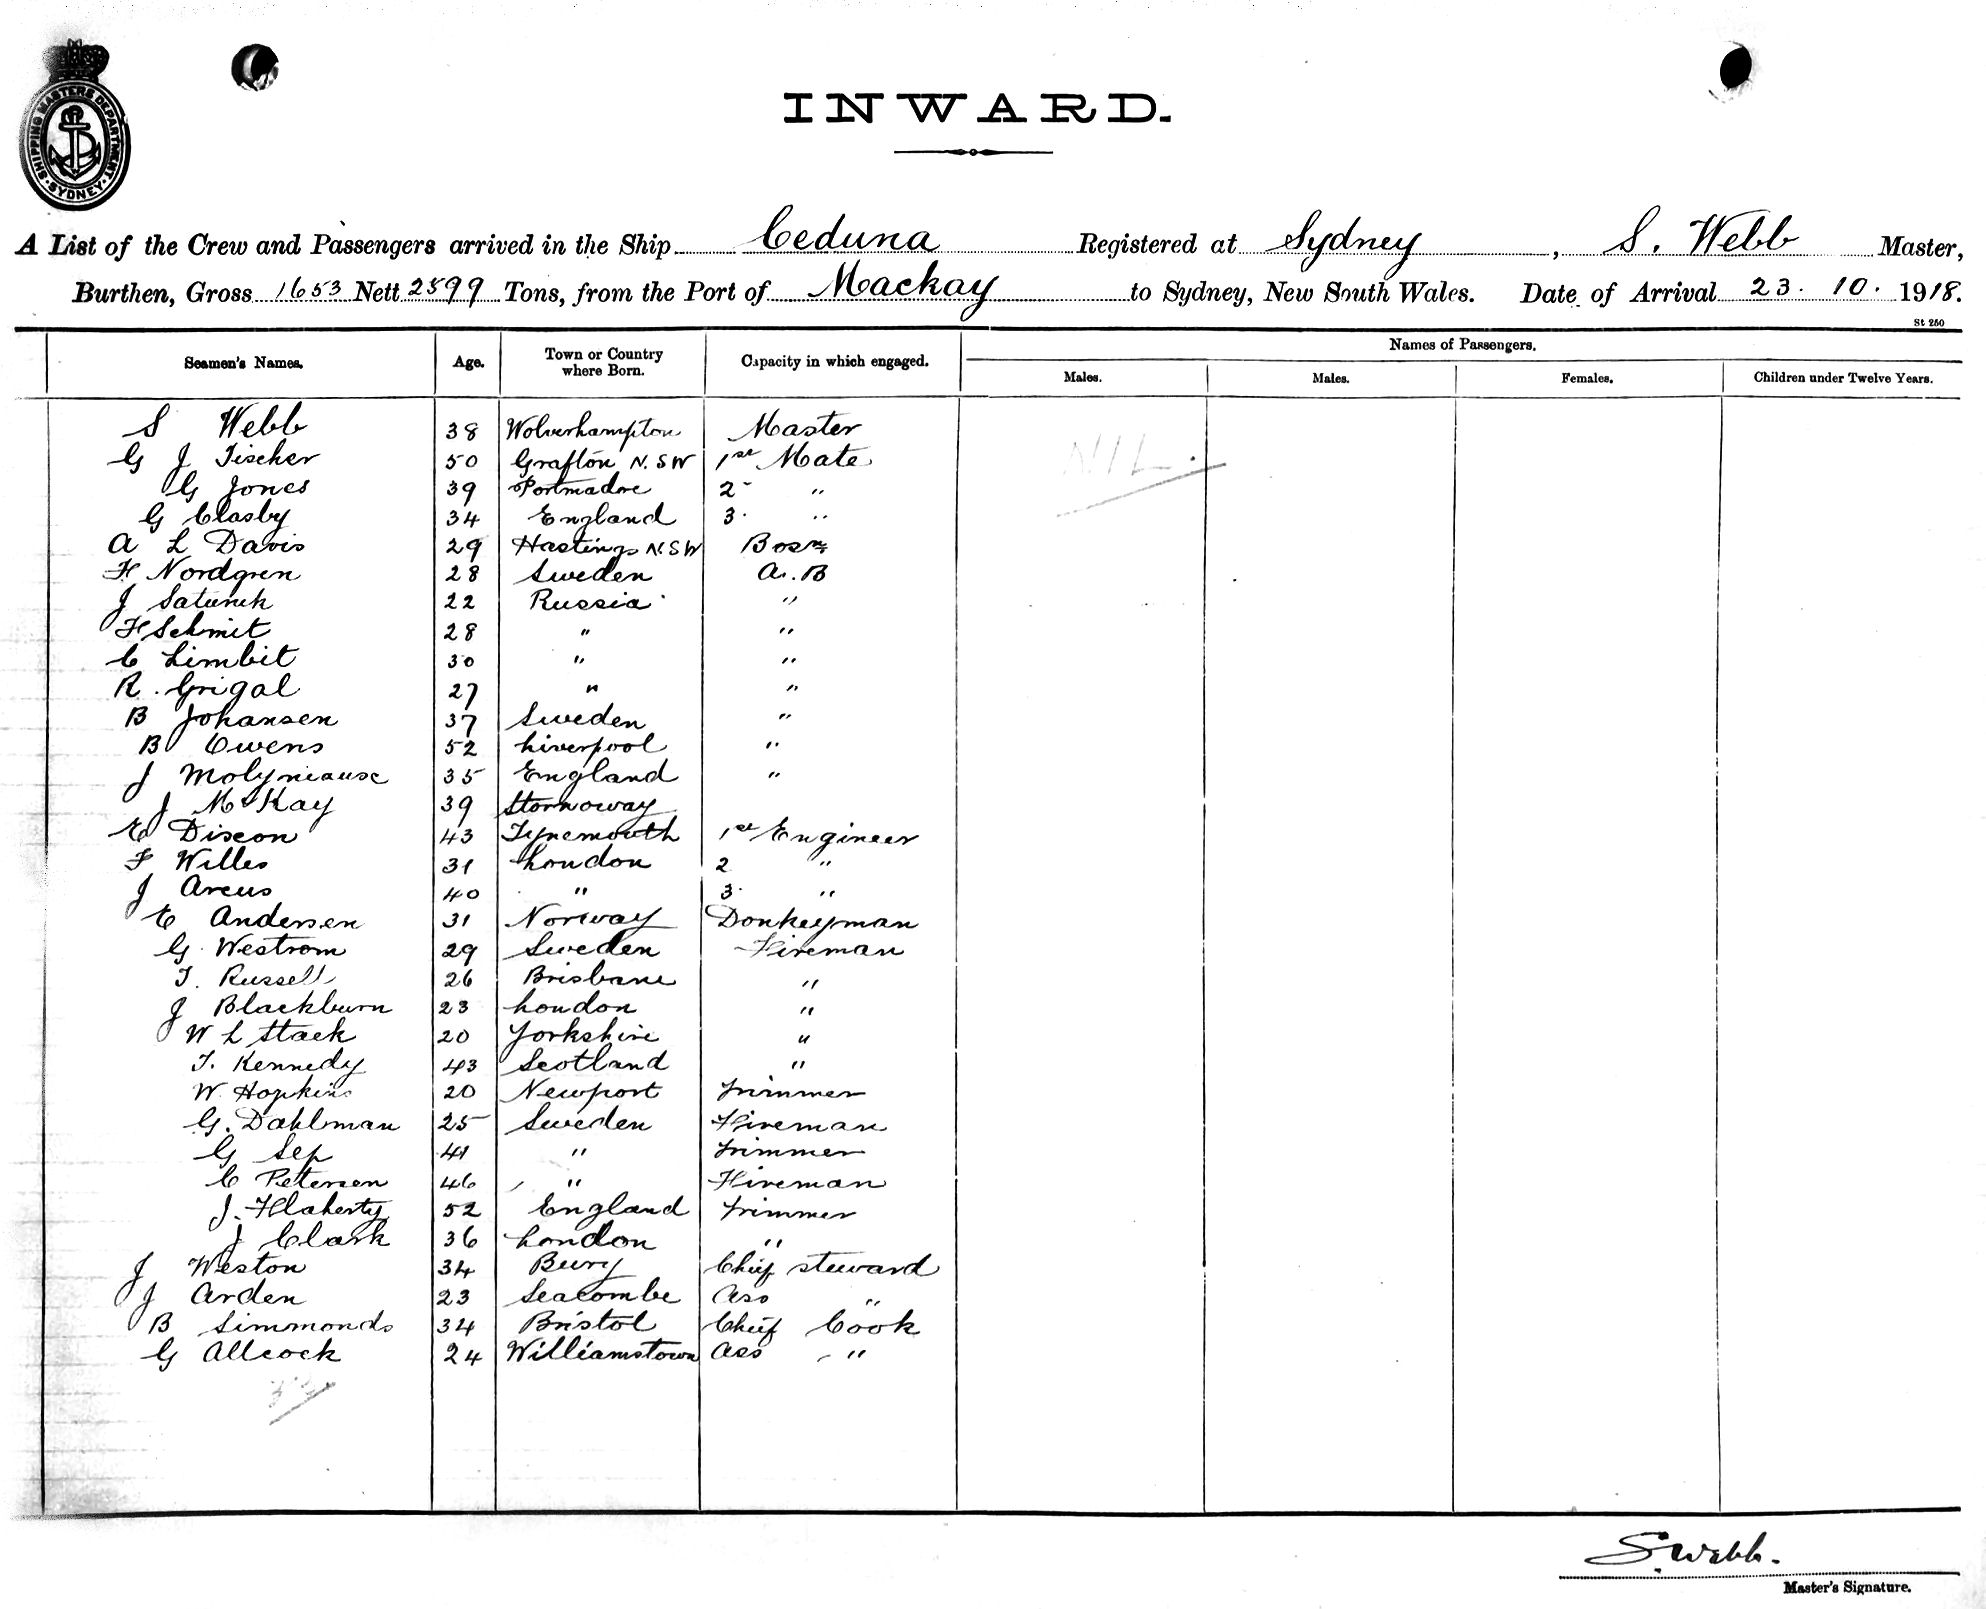 SHIPPING MASTERS DEPARTMENT
· SYDNEY ·
INWARD.
A List of the Crew and Passengers arrived in the Ship Ceduna Registered at Sydney, S. Webb Master,
Burthen, Gross 1653 Nett 2599 Tons, from the Port of Mackay to Sydney, New South Wales. Date of Arrival 23. 10. 1918.
St 250
Seamen's Names. Age. Town or Country where Born. Capacity in which engaged. Names of Passengers.
Males. Males. Females. Children under Twelve Years.
S Webb 38 Wolverhampton Master
NIL.
G J Fischer 50 Grafton N.SW 1st Mate
G Jones 39 Portmadoc 2 "
G Clasby 34 England 3. "
A L Davis 29 Hastings N.SW Bosn
H Nordgren 28 Sweden A.B
J 22 Russia "
H Schmit 28 " "
C Limbit 30 " "
R. Grigal 27 " "
B Johansen 37 Sweden "
B Owens 52 Liverpool "
J Molyneaux 35 England "
J McKay 39 Stornoway
E Dixon 43 Tynemouth 1st Engineer
F Willes 31 London 2 "
J Arcus 40 " 3. "
E Andersen 31 Norway Donkeyman
G. Westrom 29 Sweden Fireman
T. Russell 26 Brisbane "
J Blackburn 23 London "
W L Stack 20 Yorkshire "
T. Kennedy 43 Scotland "
W. Hopkins 20 Newport Trimmer
G. Dahlman 25 Sweden Fireman
G Sep 41 " Trimmer
C Petersen 46 " Fireman
J. Flaherty 52 England Trimmer
J Clark 36 London "
J Weston 34 Bury Chief Steward
J Arden 23 Seacombe Ass "
B Simmonds 34 Bristol Chief Cook
G Allcock 24 Williamstown Ass "
S. Webb.
Master's Signature.